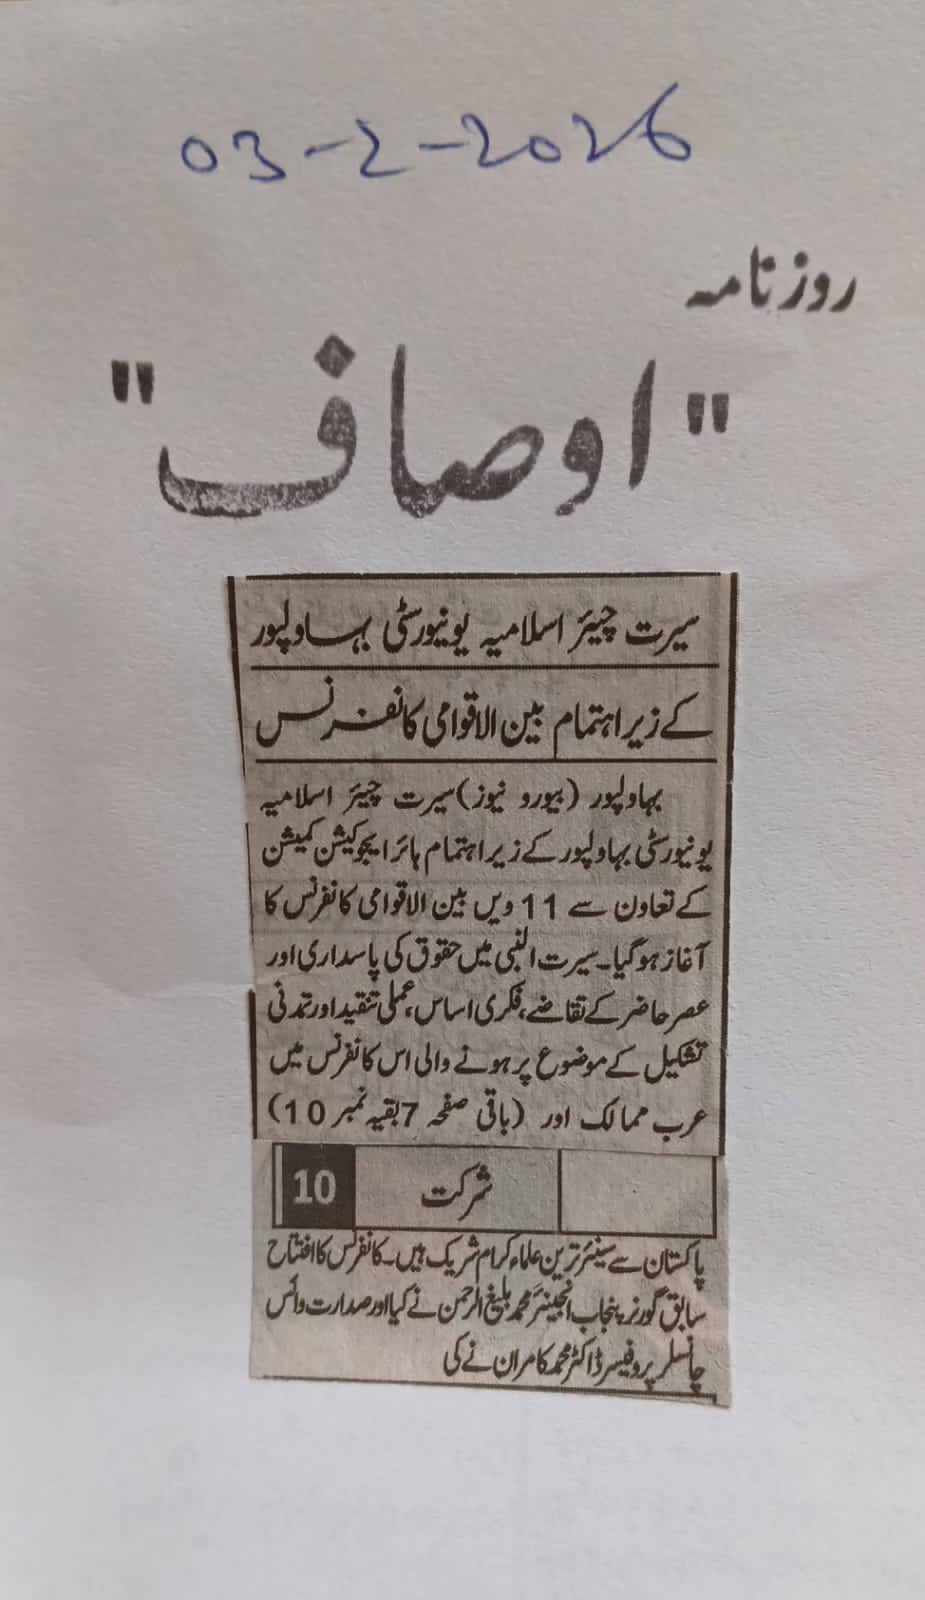 03-2-2026
روزنامہ
"اوصاف"
سیرت چیئر اسلامیہ یونیورسٹی بہاولپور
کے زیر اہتمام بین الاقوامی کانفرنس
بہاولپور (بیورو نیوز) سیرت چیئر اسلامیہ
یونیورسٹی بہاولپور کے زیر اہتمام ہائر ایجوکیشن کمیشن
کے تعاون سے 11 ویں بین الاقوامی کانفرنس کا
آغاز ہو گیا۔ سیرت النبی میں حقوق کی پاسداری اور
عصر حاضر کے تقاضے، فکری اساس، عملی تنقید اور تمدنی
تشکیل کے موضوع پر ہونے والی اس کانفرنس میں
عرب ممالک اور (باقی صفحہ 7 بقیہ نمبر 10)
شرکت 10
پاکستان سے سینئر ترین علماء کرام شریک ہیں۔ کانفرنس کا افتتاح
سابق گورنر پنجاب انجینئر محمد بلیغ الرحمن نے کیا اور صدارت وائس
چانسلر پروفیسر ڈاکٹر محمد کامران نے کی